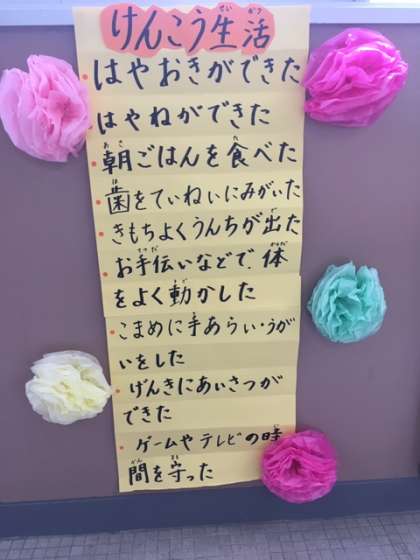 けんこう生活
はやおきができた
はやねができた
朝ごはんを食べた
歯をていねいにみがいた
きもちよくうんちが出た
お手伝いなどで、体
をよく動かした
こまめに手あらい・うが
いをした
げんきにあいさつが
できた
ゲームやテレビの時
間を守った